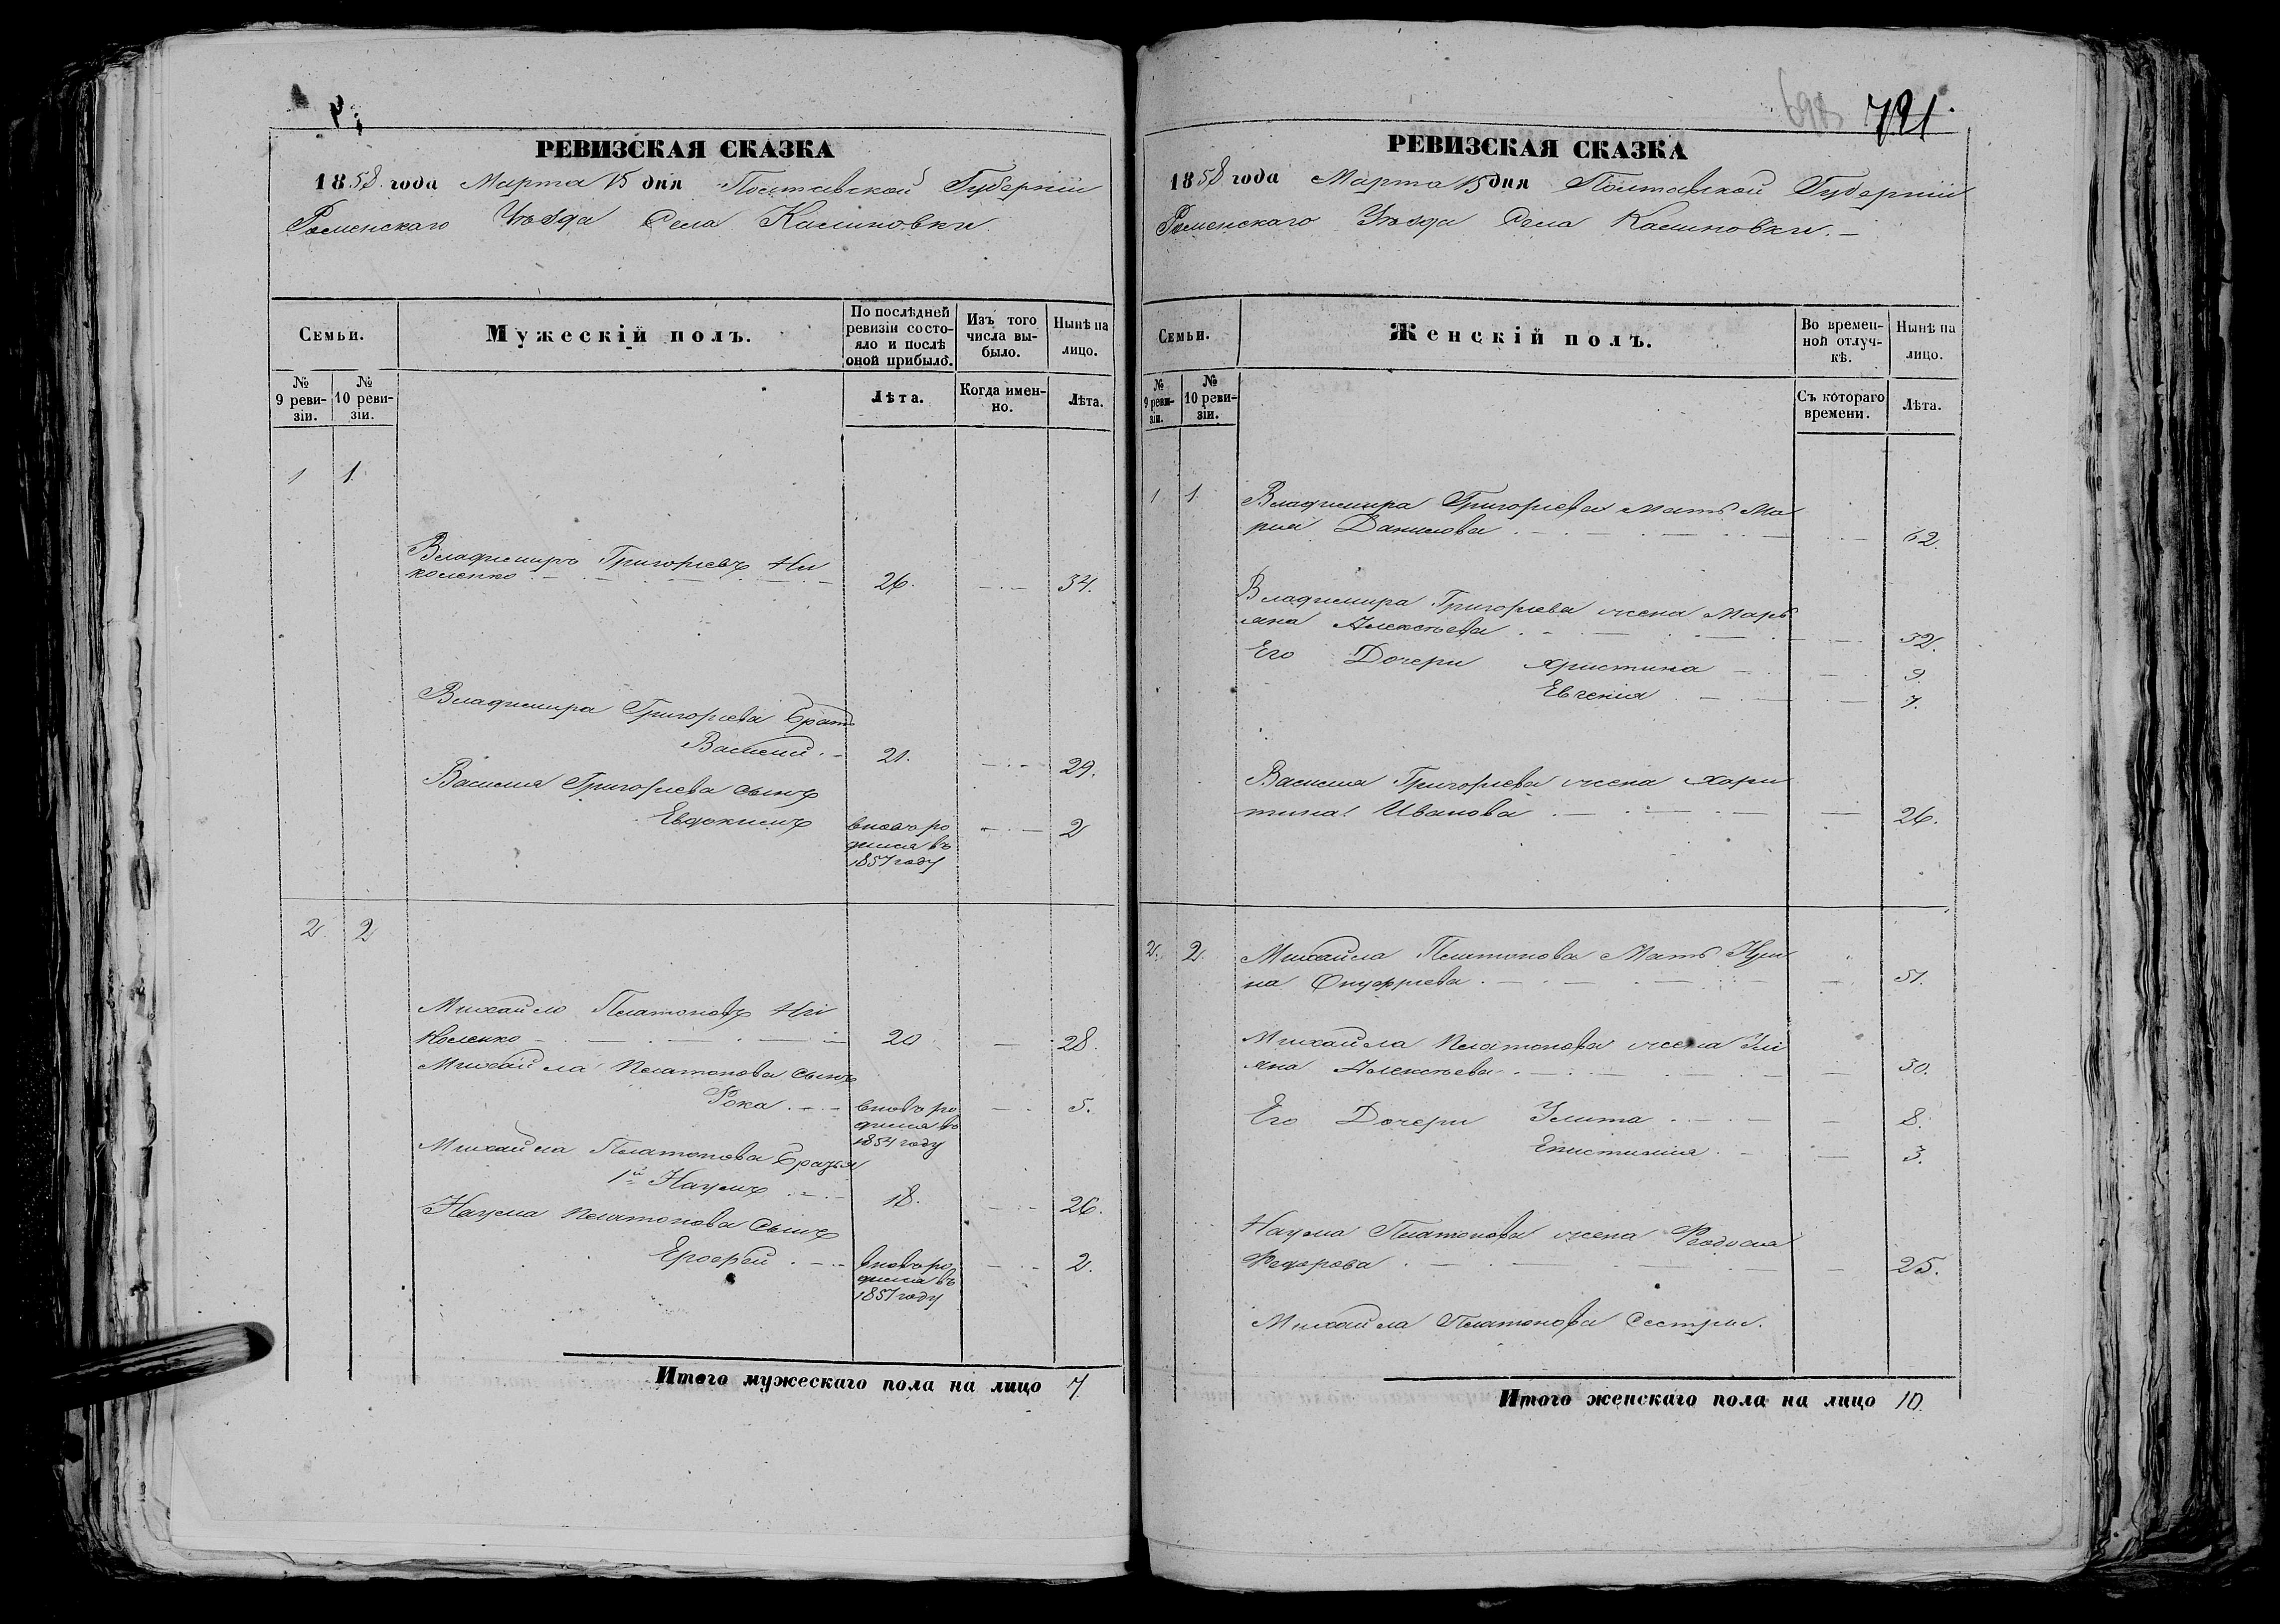 РЕВИЗСКАЯ СКАЗКА
1858 года Марта 15 дня Полтавской Губерніи
Роменскаго Уѣзда Села Калиновки.
Семьи.
Мужескій полъ.
По послѣдней ревизіи состояло и послѣ оной прибыло.
Изъ того числа выбыло.
Нынѣ на лицо.
№ 9 ревизіи.
№ 10 ревизіи.
Лѣта.
Когда именно.
Лѣта.
1 1.
Владимиръ Григорьевъ Ни
коленко 26. 34.
Владимира Григорьева братъ
Василий. 21. 29.
Василия Григорьева сынъ
Евдокимъ вновь ро 2
дился въ
1857 году
2. 2
Михайло Платоновъ Ни
коленко 20 28.
Михайла Платонова сынъ
Фока вновь ро 5.
дился въ
1854 году
Михайла Платонова братья
1й Наумъ 18. 26.
Наума Платонова сынъ
Ерофей вновь ро 2.
дился въ
1857 году
Итого мужескаго пола на лицо 7
698 791.
РЕВИЗСКАЯ СКАЗКА
1858 года Марта 15 дня Полтавской Губерніи
Роменскаго Уѣзда Села Калиновки.
Семьи.
Женскій полъ.
Во временной отлучкѣ.
Нынѣ на лицо.
№ 9 ревизіи.
№ 10 ревизіи.
Съ котораго времени.
Лѣта.
1 1. Владимира Григорьева Мать Ма
рия Данилова 62.
Владимира Григорьева жена Марь
яна Алексѣева 32.
Его Дочери Христина 9.
Евгения 7.
Василия Григорьева жена Хари
тина Иванова 26.
2. 2. Михайла Платонова Мать
на Онуфриева 51.
Михайла Платонова жена Ули
яна Алексѣева 30.
Его Дочери Улита 8.
Епистимия 3.
Наума Платонова жена Феодосия
Федорова 25.
Михайла Платонова Сестры.
Итого женскаго пола на лицо 10.